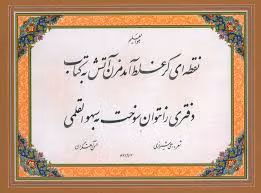 هوالعلیم
نقطه ای گر غلط آمد مزن آتش به کتاب
دفتری را نتوان سوخت به سهو القلمی